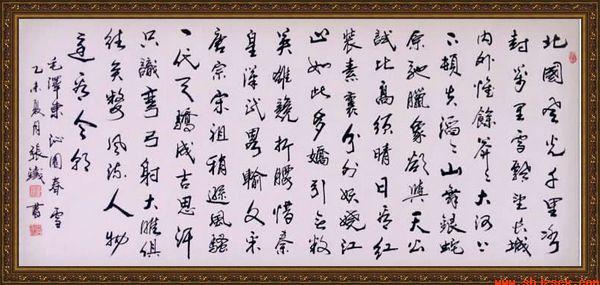 北國風光千里冰
封萬里雪飄望長城
内外惟餘莽〻大河上
下頓失滔〻山舞銀蛇
原馳臘象欲與天公
試比高須晴日看紅
裝素裹分外妖嬈江
山如此多嬌引無數
英雄競折腰惜秦
皇漢武畧輸文采
唐宗宋祖稍遜風騷
一代天驕成吉思汗
只識彎弓射大雕俱
往矣數風流人物
還看今朝
毛澤東 沁園春 雪
乙未夏月張 書